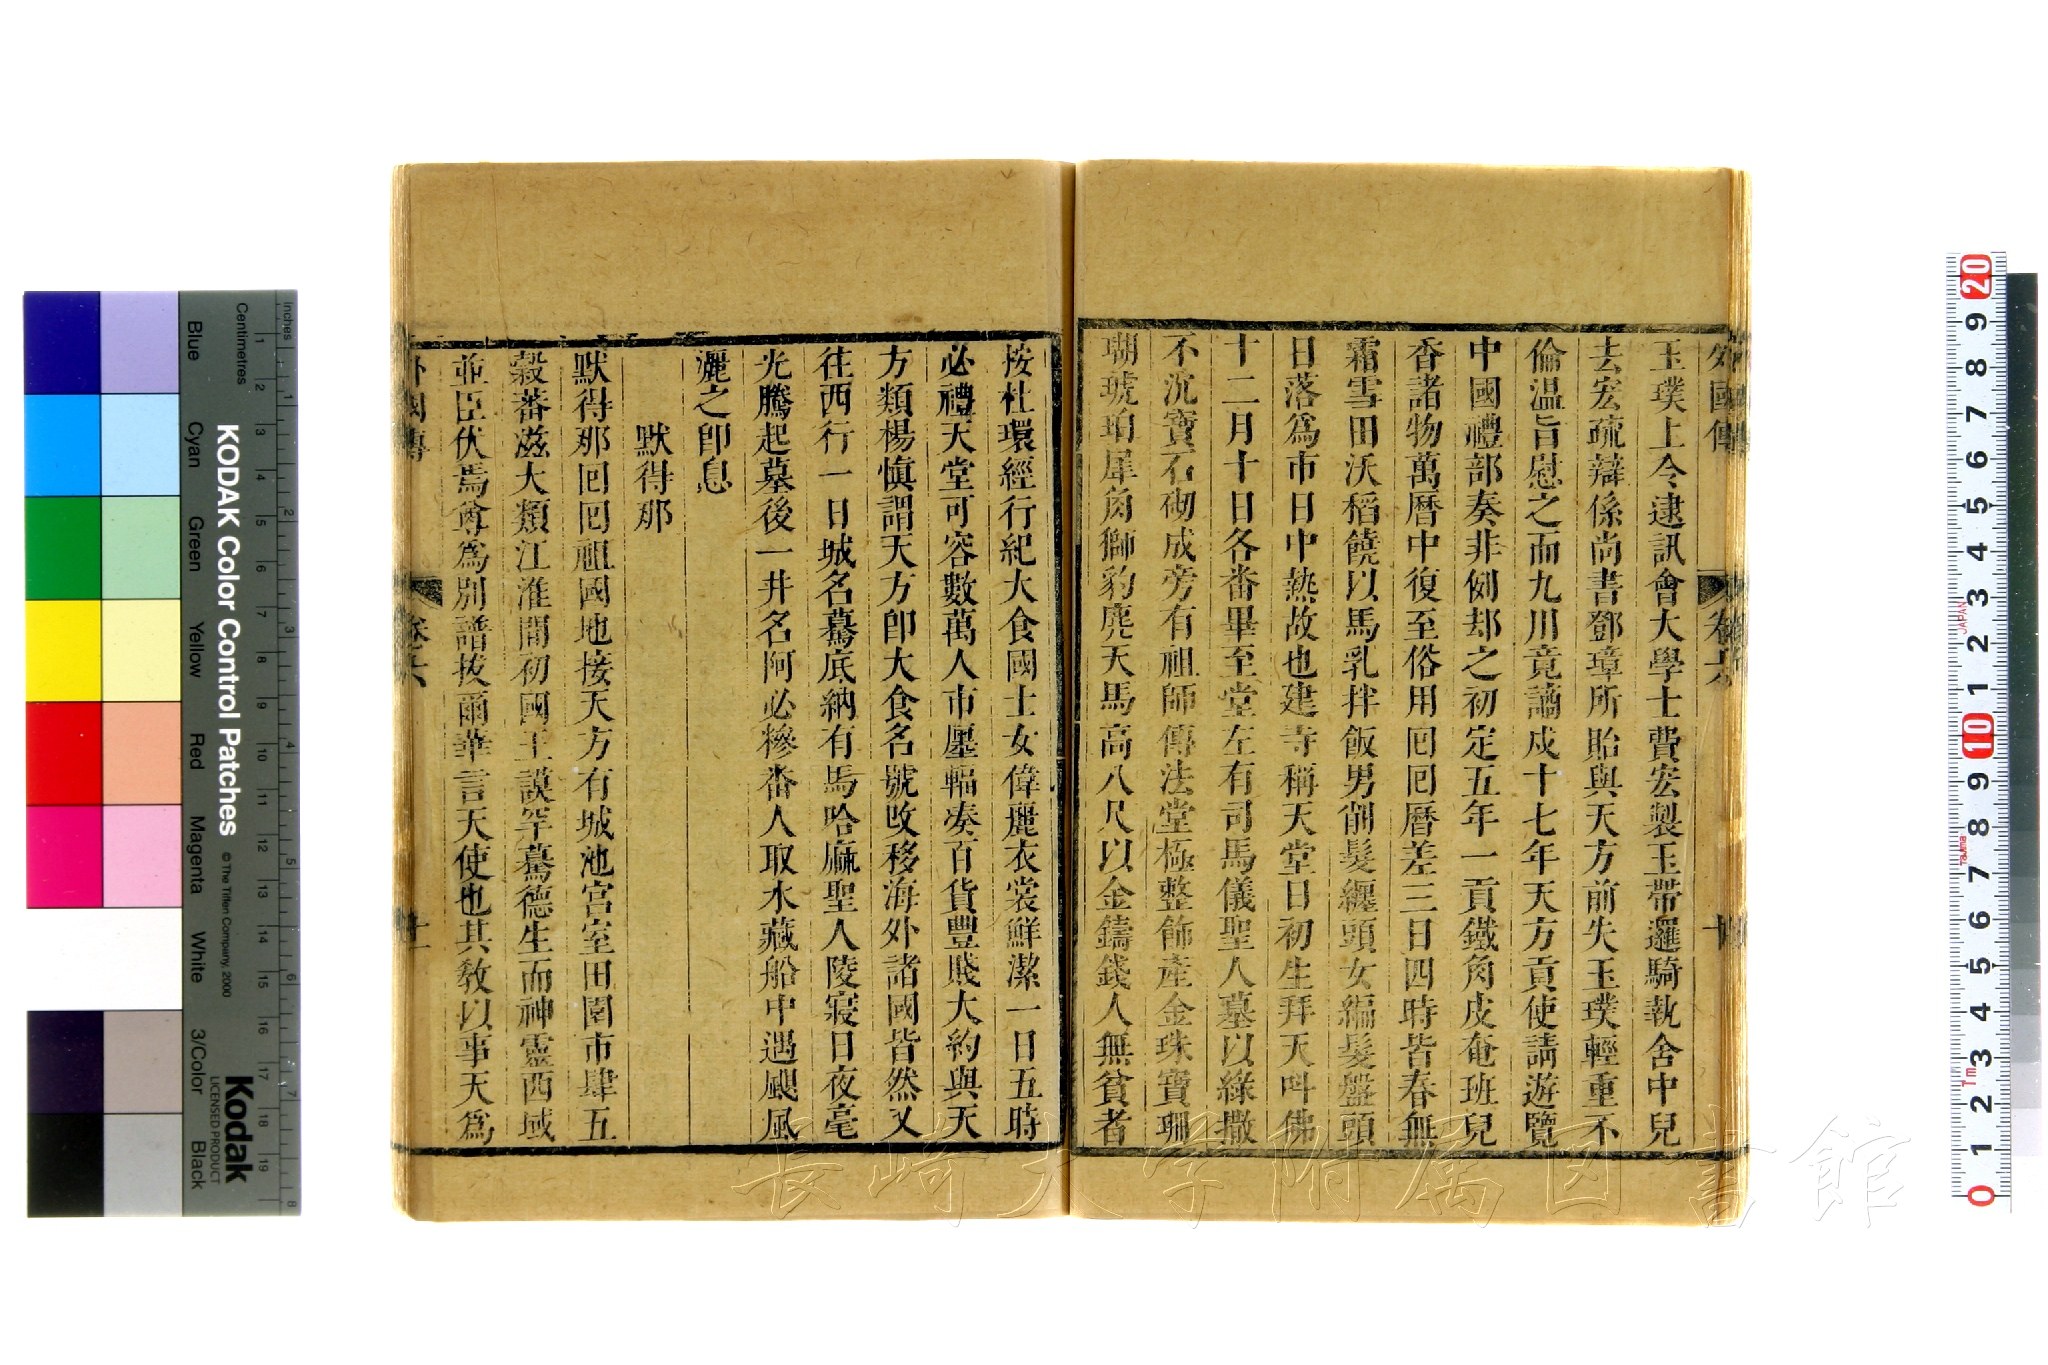 外國傳 卷六 十
玉璞上令逮訊會大學士費宏製玉帶邏騎執舍中兒
去宏疏辯係尚書鄧璋所貽與天方前失玉璞輕重不
倫温旨慰之而九川竟謫戍十七年天方貢使請遊覽
中國禮部奏非例却之初定五年一貢鐵角皮奄班兒
香諸物萬曆中復至俗用囘囘曆差三日四時皆春無
霜雪田沃稻饒以馬乳拌飯男削髮纏頭女編髮盤頭
日落爲市日中熱故也建寺稱天堂日初生拜天呌佛
十二月十日各畨畢至堂左有司馬儀聖人墓以綠撒
不泥寶石砌成旁有祖師傳法堂極整飾產金珠寶珊
瑚琥珀犀角獅豹麂天馬高八尺以金鑄錢人無貧者
按杜環經行紀大食國士女偉麗衣裳鮮潔一日五時
必禮天堂可容數萬人市廛輻凑百貨豐賤大約與天
方類楊愼謂天方卽大食名號改移海外諸國皆然又
往西行一日城名驀底納有馬哈麻聖人陵寢日夜毫
光騰起墓後一井名阿必糝畨人取水藏船中遇颶風
灑之卽息
默得那
默得那囘囘祖國地接天方有城池宮室田園市肆五
穀蕃滋大類江淮間初國王謨罕驀德生而神靈西域
並臣伏焉尊爲別諳拔爾華言天使也其敎以事天爲
外國傳 卷六 十一
KODAK Color Control Patches
© The Tiffen Company, 2000
Kodak
LICENSED PRODUCT
Inches
Centimetres
Blue Cyan Green Yellow Red Magenta White 3/Color Black
JAPAN
Tajima
長崎大学附属図書館